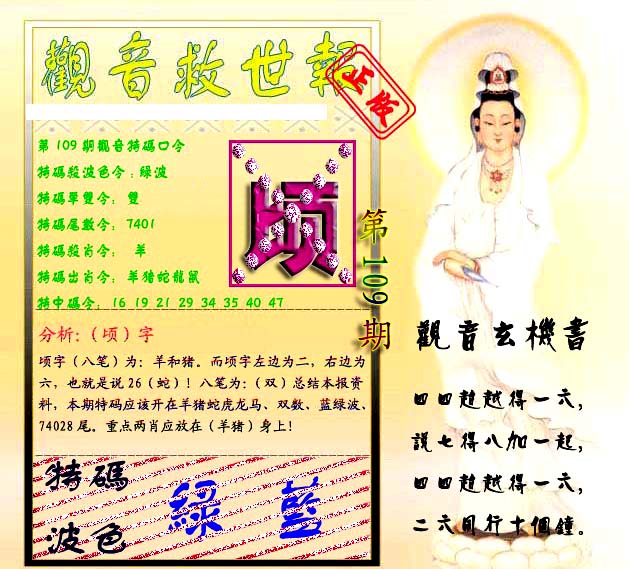 觀音救世報
正版
第109期觀音特碼口令
特碼殺波色令:綠波
特碼單雙令: 雙
特碼尾數令: 7401
特碼殺肖令: 羊
特碼出肖令: 羊猪蛇龍鼠
特中碼令: 16 19 21 29 34 35 40 47
顷
第109期
分析:（顷）字
顷字（八笔）为：羊和猪。而顷字左边为二，右边为
六，也就是说26（蛇）！八笔为：（双）总结本报资
料，本期特码应该开在羊猪蛇虎龙马、双数、蓝绿波、
74028尾。重点两肖应放在（羊猪）身上！
特碼
波色
綠 藍
觀音玄機書
四四趙越得一六,
説七得八加一起,
四四趙越得一六,
二六同行十個鐘。